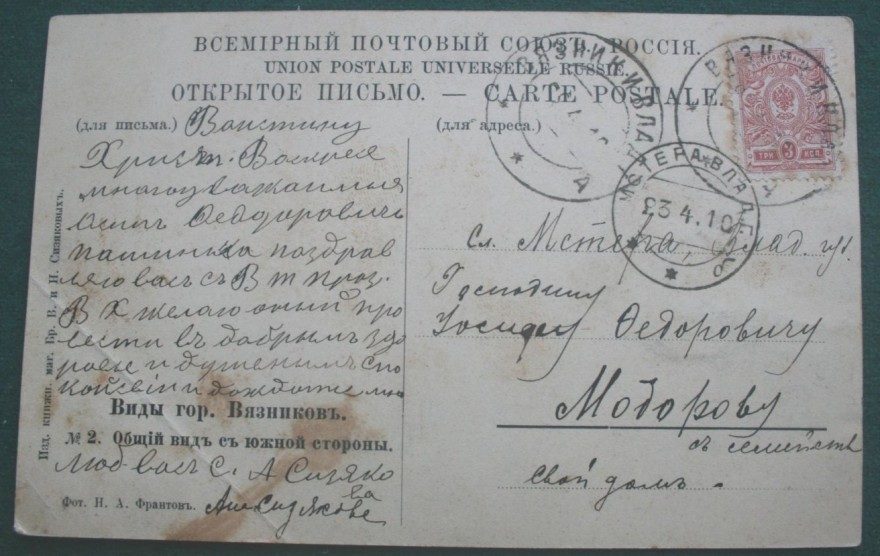 ВСЕМІРНЫЙ ПОЧТОВЫЙ СОЮЗЪ. РОССІЯ.
UNION POSTALE UNIVERSELLE RUSSIE.
ОТКРЫТОЕ ПИСЬМО. — CARTE POSTALE.
(для письма.) Воистину
Христ. Воскресе
многоуважаимыя
Осип Ѳедоровичь
поздрав
ляю васъ съ В т праз.
В Х желаю оный про
вести въ добрымъ здо
ровье и душеныимъ спо
Виды гор. Вязниковъ.
№ 2. Общій видъ съ южной стороны.
люб васъ С. А Сизяко
ва
Фот. Н. А. Франтовъ.
Изд. книжн. маг. Бр. В. и Н. Сизиковыхъ.
(для адреса.)
сл. Мстера, Влад. губ.
Господину
Ѳедоровичу
Модорову
съ семейств
свой домъ
ВЯЗНИКИ ВЛАД
ВЯЗНИКИ ВЛАД
МСТЕРА ВЛАД. ГУБ
23 4.10
ТРИ 3 КОП.